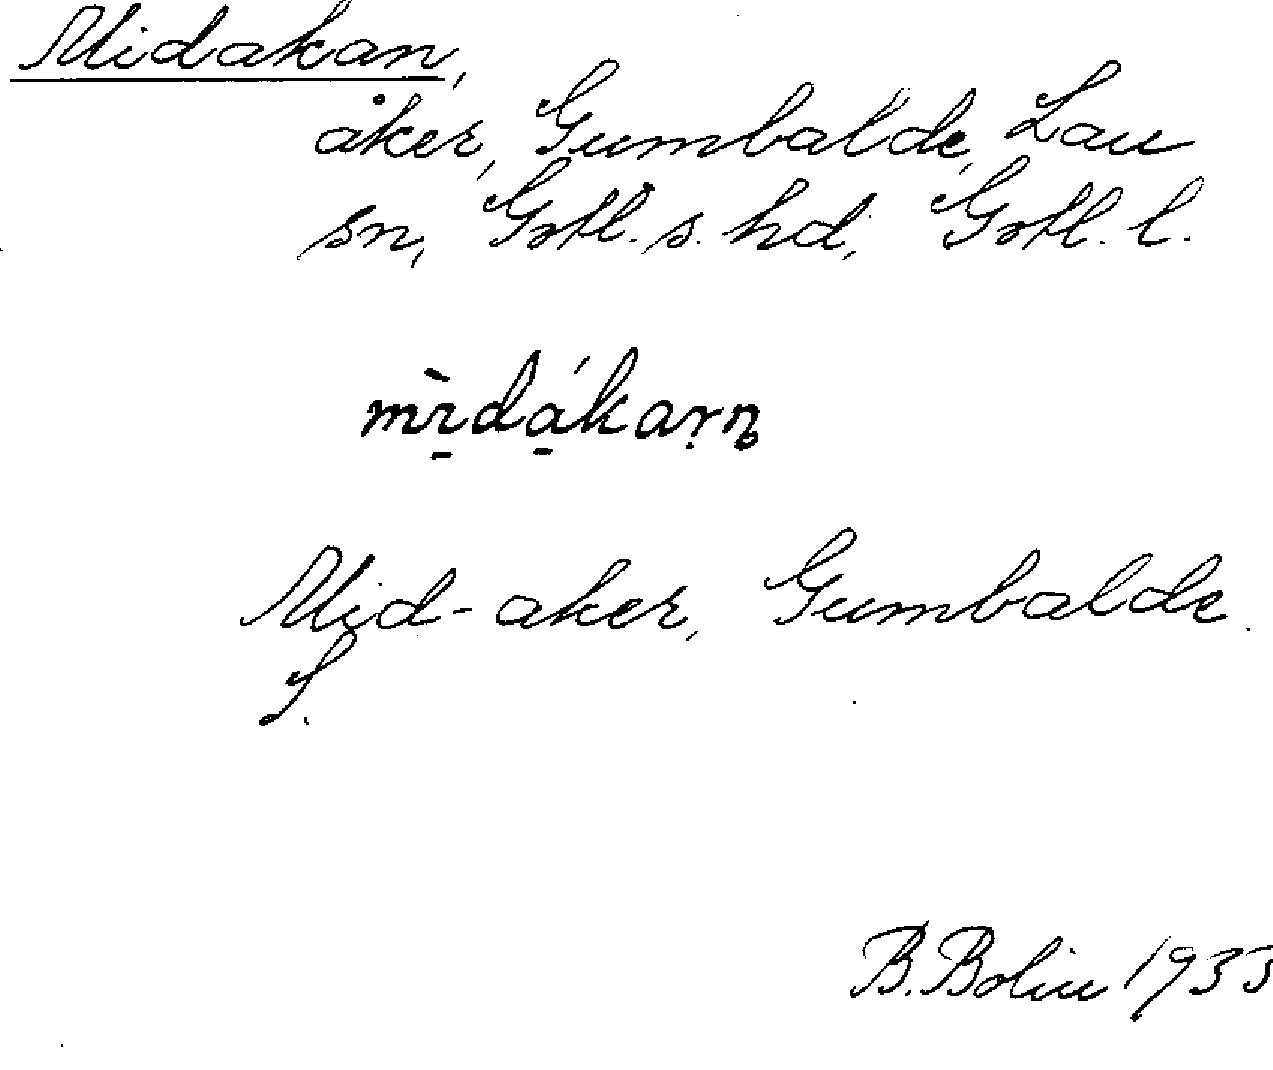 Midakan,
åker, Gumbalde, Lau
sn, Gotl. s. hd, Gotl. l.
mı̀dákarn
Mid-aker, Gumbalde.
S.
B. Bolin 1933